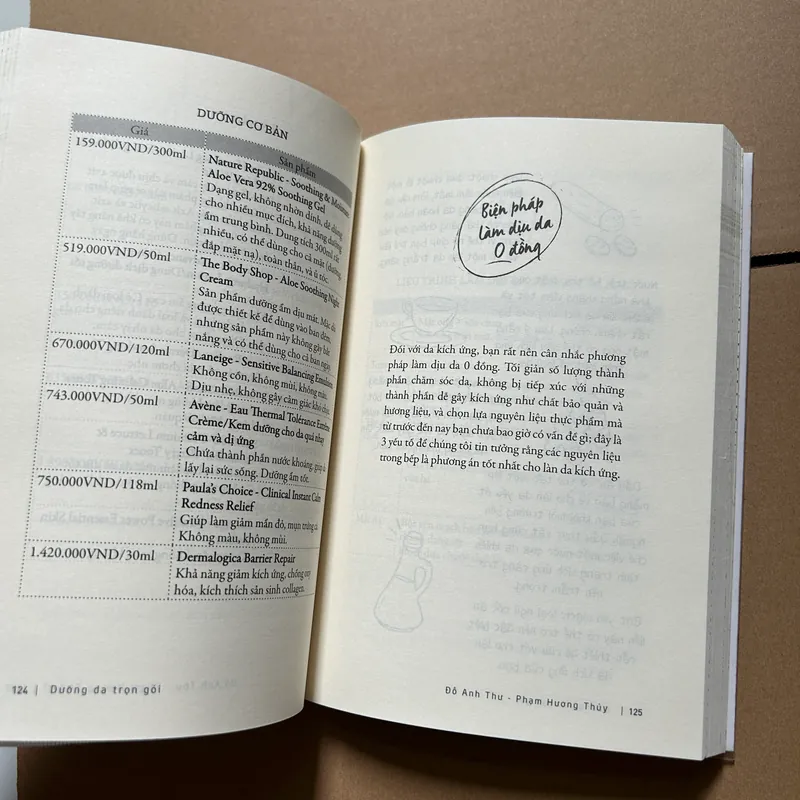 DƯỠNG CƠ BẢN
Giá
Sản phẩm
159.000VND/300ml
Nature Republic - Soothing & Moisture
Aloe Vera 92% Soothing Gel
Dạng gel, không nhờn dính, dễ dùng
cho nhiều mục đích, khả năng dưỡng
ẩm trung bình. Dung tích 300ml rất
nhiều, có thể dùng cho cả mặt (dưỡng,
đắp mặt nạ), toàn thân, và ủ tóc.
519.000VND/50ml
The Body Shop - Aloe Soothing Night
Cream
Sản phẩm dưỡng ẩm dịu mát. Mặc dù
được thiết kế để dùng vào ban đêm,
nhưng sản phẩm này không gây bắt
nắng và có thể dùng cho cả ban ngày.
670.000VND/120ml
Laneige - Sensitive Balancing Emulsion
Không cồn, không mùi, không màu.
Dịu nhẹ, không gây cảm giác khó chịu.
743.000VND/50ml
Avène - Eau Thermal Tolerance Extrême
Crème/Kem dưỡng cho da quá nhạy
cảm và dị ứng
Chứa thành phần nước khoáng, giúp da
lấy lại sức sống. Dưỡng ẩm tốt.
750.000VND/118ml
Paula's Choice - Clinical Instant Calm
Redness Relief
Giúp làm giảm mẩn đỏ, mụn trứng cá.
Không màu, không mùi.
1.420.000VND/30ml
Dermalogica Barrier Repair
Khả năng giảm kích ứng, chống oxy
hóa, kích thích sản sinh collagen.
124 | Dưỡng da trọn gói
Biện pháp
làm dịu da
0 đồng
Đối với da kích ứng, bạn rất nên cân nhắc phương
pháp làm dịu da 0 đồng. Tối giản số lượng thành
phần chăm sóc da, không bị tiếp xúc với những
thành phần dễ gây kích ứng như chất bảo quản và
hương liệu, và chọn lựa nguyên liệu thực phẩm mà
từ trước đến nay bạn chưa bao giờ có vấn đề gì; đây là
3 yếu tố để chúng tôi tin tưởng rằng các nguyên liệu
trong bếp là phương án tốt nhất cho làn da kích ứng.
Đỗ Anh Thư - Phạm Hương Thủy | 125